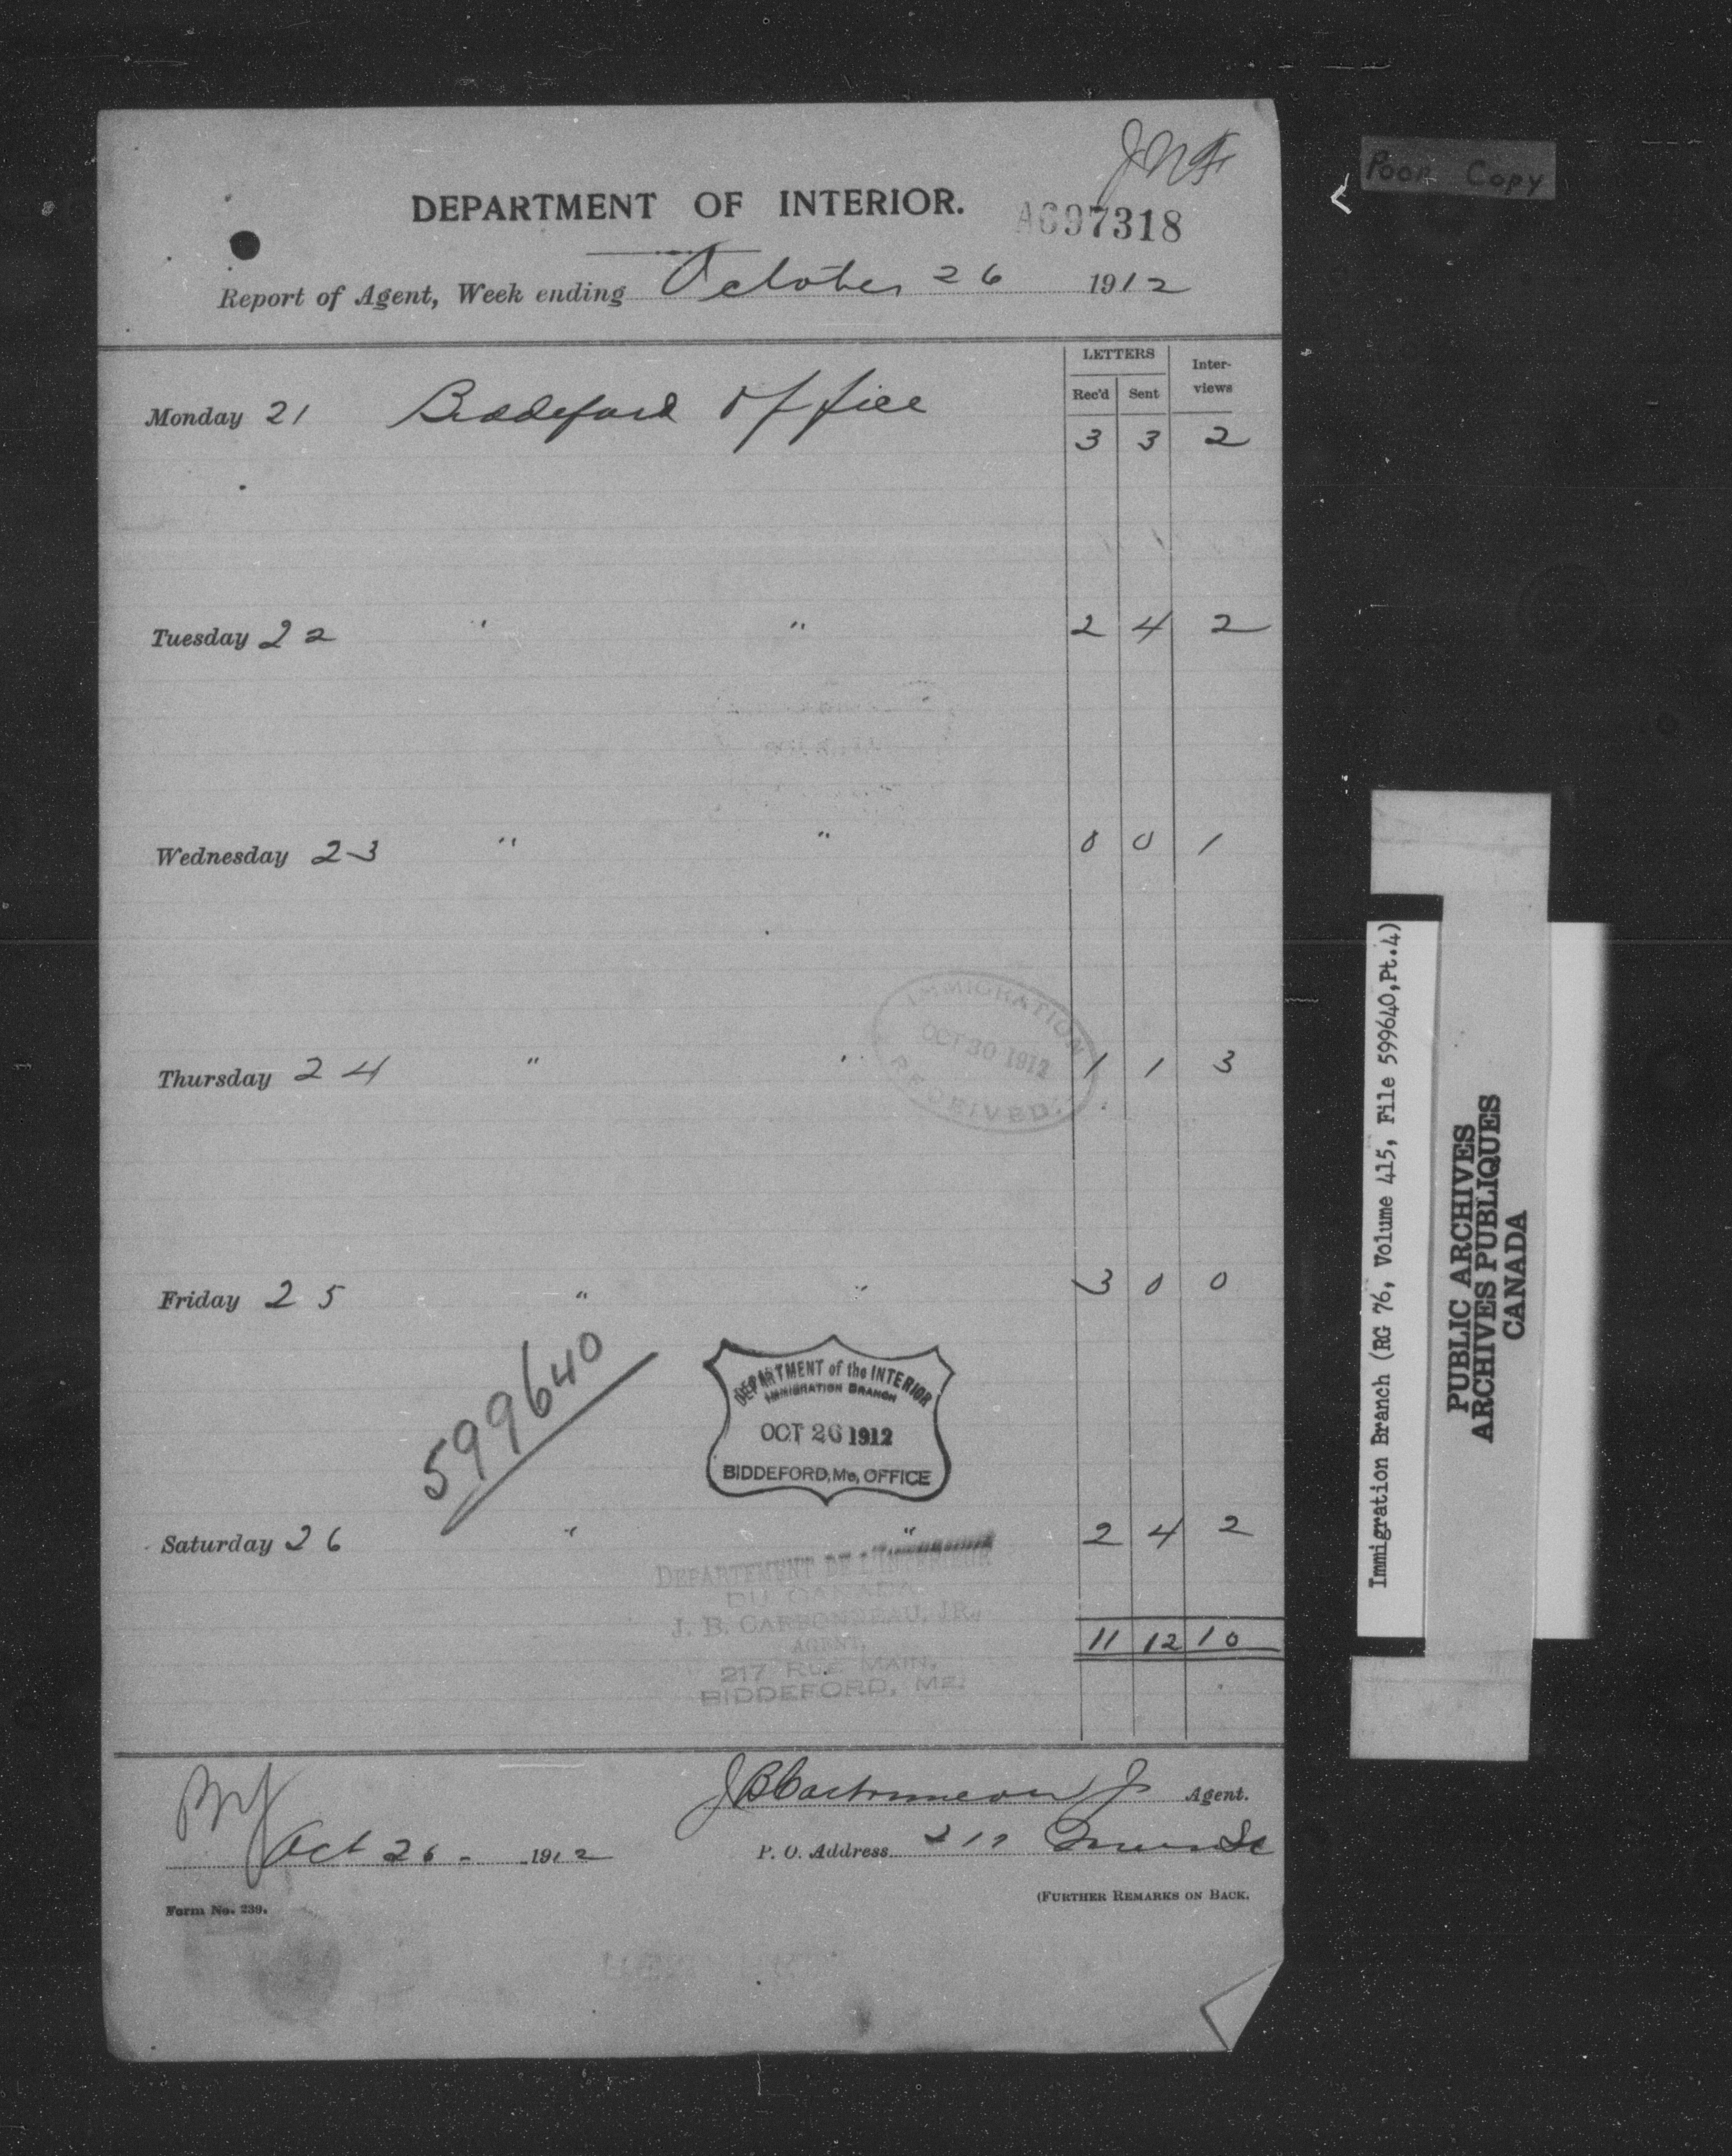 JNF
Poor Copy
DEPARTMENT OF INTERIOR.
A697318
Report of Agent, Week ending October 26 1912
LETTERS
Inter-
views
Rec'd Sent
Monday 21 Biddeford Office
3 3 2
Tuesday 22 " " 2 4 2
Wednesday 23 " " 0 0 1
IMMIGRATION
OCT 30 1912
RECEIVED
Thursday 24 " " 1 1 3
Friday 25 " " 3 0 0
599640
DEPARTMENT of the INTERIOR
IMMIGRATION BRANCH
OCT 26 1912
BIDDEFORD, Me, OFFICE
Saturday 26 " " 2 4 2
DEPARTEMENT DE L'INTERIEUR
DU CANADA
J. B. CARBONNEAU, JR.,
AGENT,
217 RUE MAIN,
BIDDEFORD, ME.
11 12 10
J B Carbonneau Jr Agent.
Oct 26 - 1912
P. O. Address 217 Main St
Form No. 239.
(FURTHER REMARKS ON BACK.
Immigration Branch (RG 76, Volume 415, File 599640,Pt.4)
PUBLIC ARCHIVES
ARCHIVES PUBLIQUES
CANADA